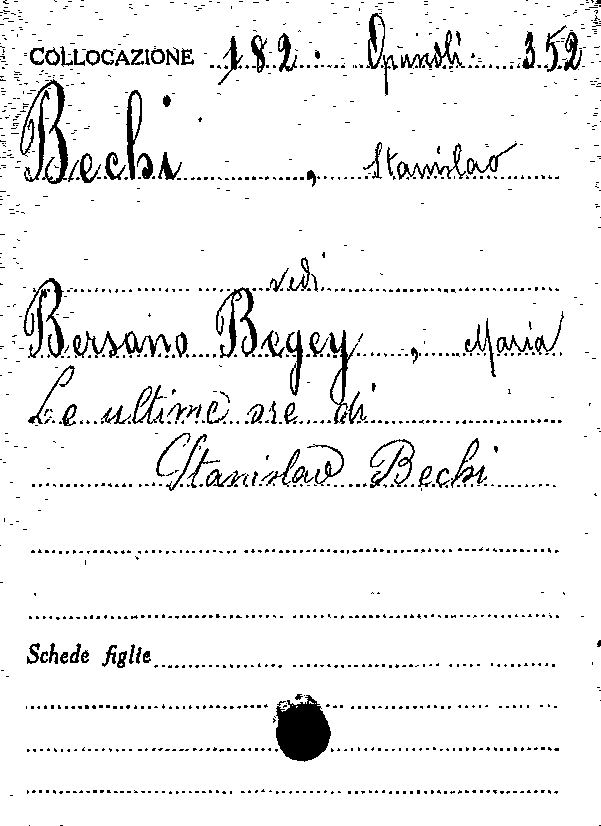 COLLOCAZIONE 182. Opuscoli. 352
Bechi, Stanislao
vedi
Bersano Begey, Maria
Le ultime ore di
Stanislao Bechi
Schede figlie